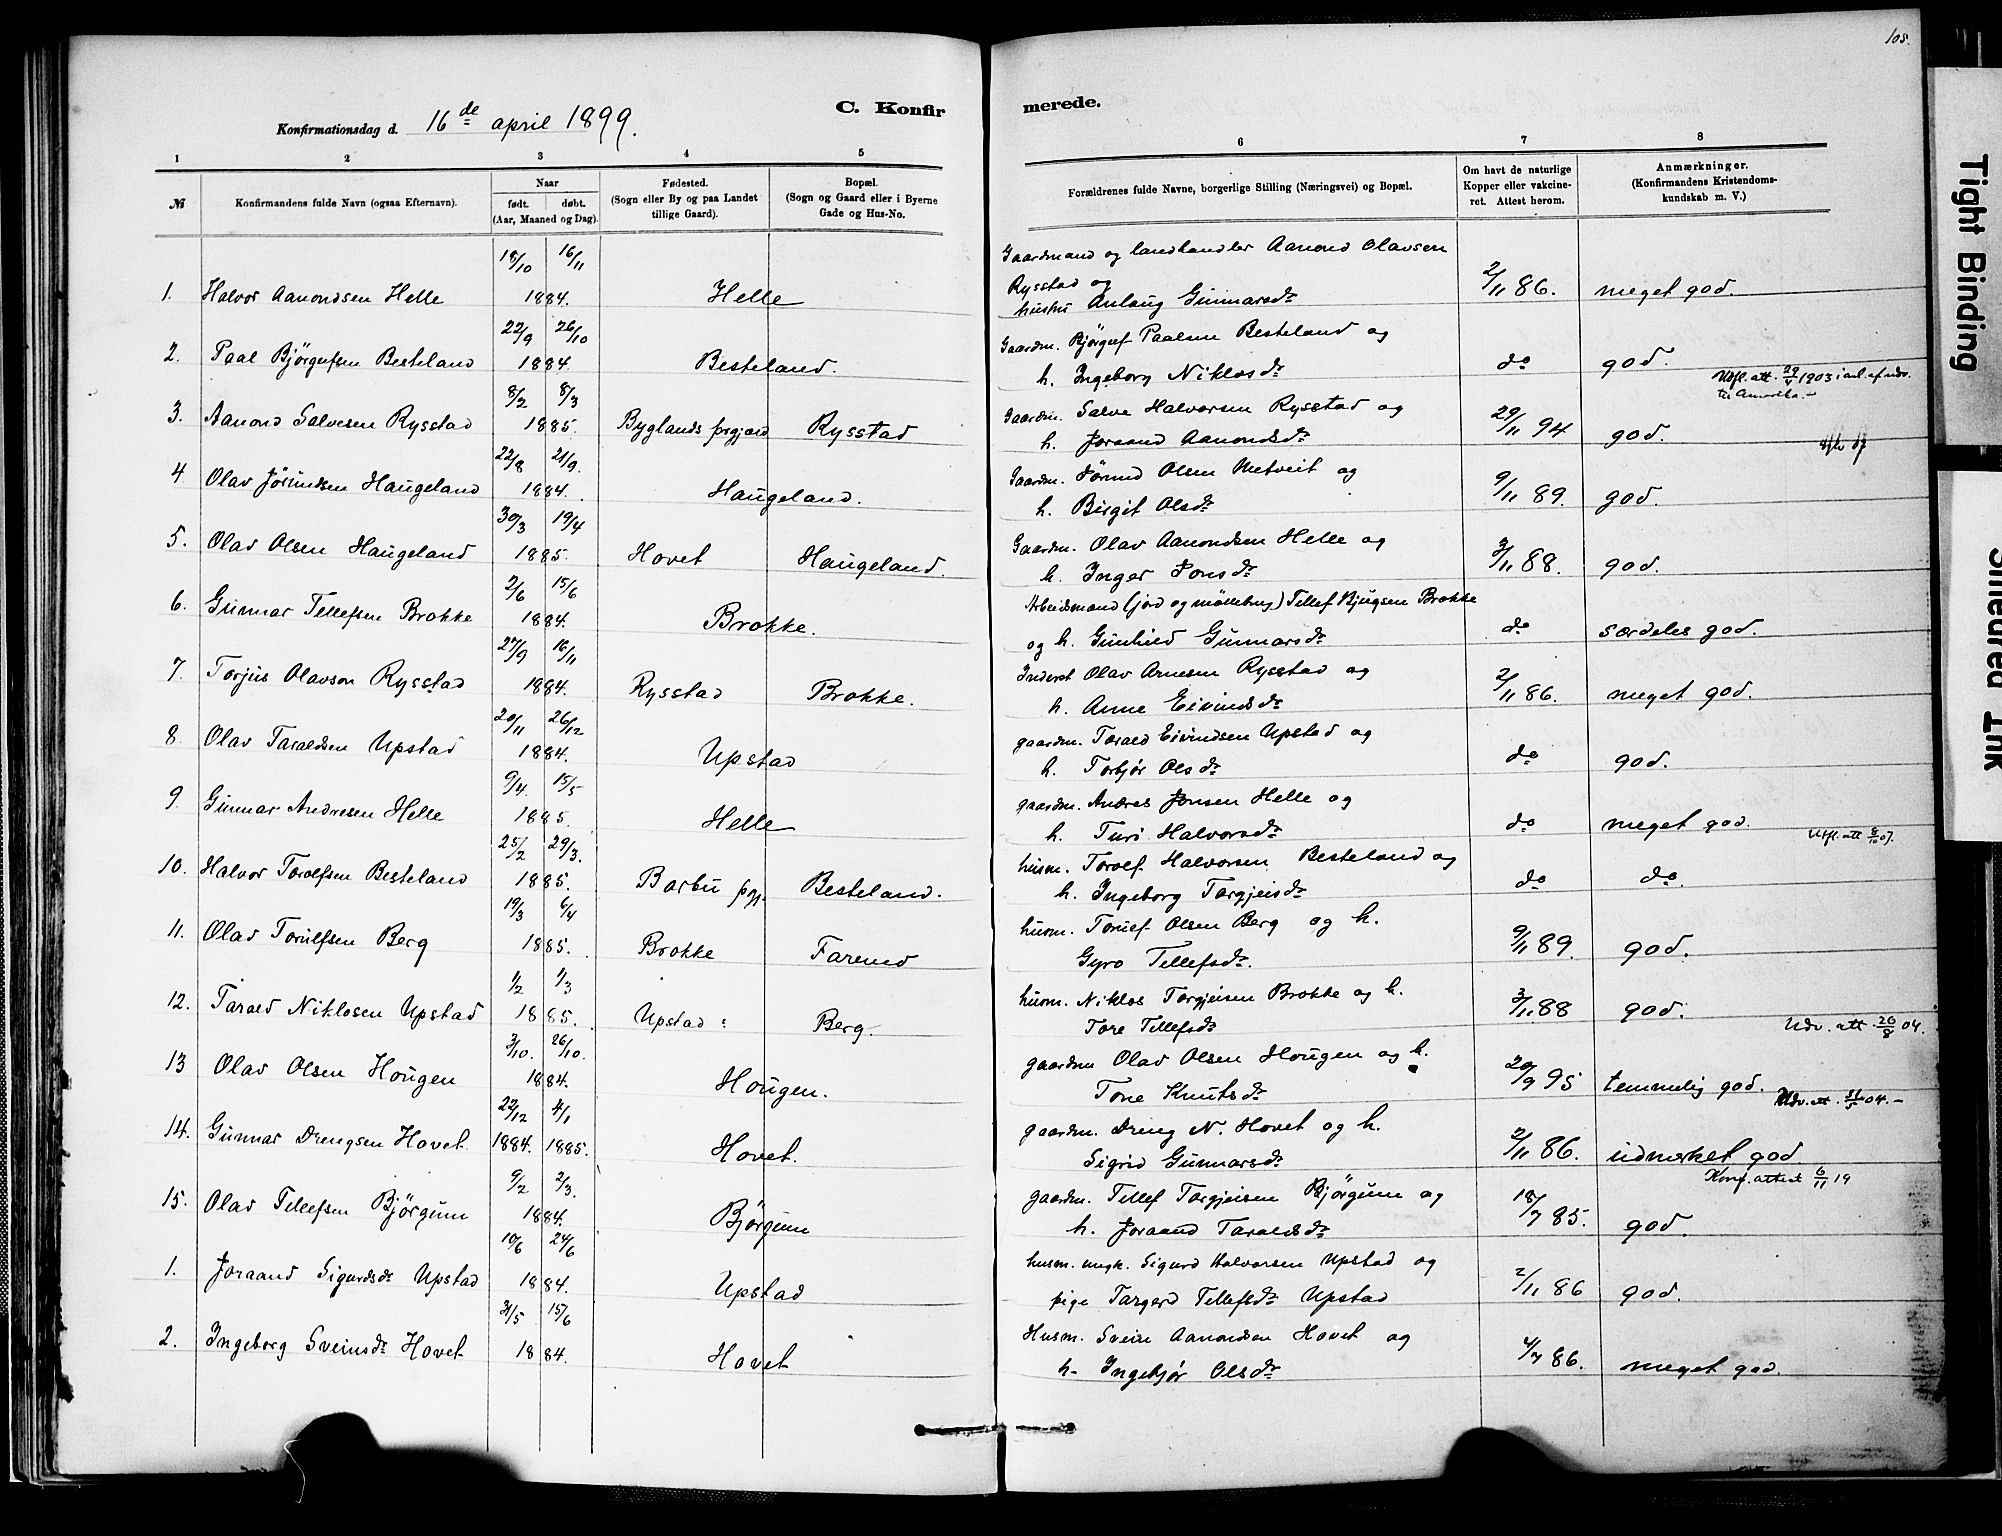 105.
C. Konfirmerede.
Konfirmationsdag d. 16de april 1899.
1 2 3 4 5 6 7 8
№
Konfirmandens fulde Navn (ogsaa Efternavn).
Naar
født. døbt.
(Aar, Maaned og Dag).
Fødested.
(Sogn eller By og paa Landet
tillige Gaard).
Bopæl.
(Sogn og Gaard eller i Byerne
Gade og Hus-No.
Forældrenes fulde Navne, borgerlige Stilling (Næringsvei) og Bopæl.
Om havt de naturlige
Kopper eller vakcine-
ret. Attest herom.
Anmærkninger.
(Konfirmandens Kristendoms-
kundskab m. V.)
18/10 16/11 Gaardmand og landhandler Aanond Olavsen
1. Halvor Aanondsen Helle 1884. Helle Rysstad og hustru Anlaug Gunnarsdr 2/11 86. meget god.
22/9 26/10 Gaardm. Bjørguf Paalsen Besteland og
2. Paal Bjørgufsen Besteland 1884. Besteland. h. Ingeborg Niklosdr do god.
Utfl. att. 29/4 1903 i anl. af udv. til Amerika.
8/2 8/3 Gaardm. Salve Halvorsen Rysstad og
3. Aanond Salvesen Rysstad 1885. Byglands prgjæld Rysstad h. Joraand Aanondsdr 29/11 94 god.
22/8 21/9. Gaardm. Jörund Olsen Metveit og
4 Olav Jörundsen Haugeland 1884. Haugeland. h. Birgit Olsdr 9/11 89. god.
30/3 19/4 Gaardm. Olav Aanondsen Helle og
5. Olav Olsen Haugeland 1885. Hovet Haugeland. h. Inger Jonsdr 3/11 88. god.
2/6 15/6 Arbeidsmand (jord og møllebrug) Tellef Bjugsen Brokke
6. Gunnar Tellefsen Brokke 1884. Brokke. og h. Gunhild Gunnarsdr do særdeles god.
27/9 16/11 Inderst Olav Arnesen Rysstad og
7. Torjus Olavson Rysstad 1884. Rysstad Brokke. h. Anne Eivindsdr 2/11 86. meget god.
20/11 26/12 gaardm. Tarald Eivindsen Upstad og
8. Olav Taraldsen Upstad 1884. Upstad h. Torbjør Olsdr do god.
9/4. 15/5 gaardm. Andres Jonsen Helle og
9. Gunnar Andresen Helle 1885. Helle h. Turi Halvorsdr do meget god.
Utfl. att 8/10 07.
25/2 29/3. husm. Torolf Halvorsen Besteland og
10. Halvor Torolfsen Besteland 1885. Barbu pgj. Besteland. h. Ingeborg Torgjeisdr do do.
19/3 6/4 husm. Torulf Olsen Berg og h.
11. Olav Torulfsen Berg 1885. Brokke Farend Gyro Tellefsdr. 9/11 89. god.
1/2 1/3 husm. Niklos Torgjeisen Brokke og h.
12. Tarald Niklosen Upstad 1885. Upstad Berg. Tore Tellefsdr 3/11 88 god.
Udv. att. 26/8 04.
3/10. 26/10. gaardm Olav Olsen Hougen og h.
13 Olav Olsen Hougen 1884. Hougen. Tone Knutsdr 20/9 95 temmelig god.
Udv. att. 31/5 04.
22/12 4/1 gaardm. Dreng N. Hovet og h.
14. Gunnar Drengsen Hovet 1884. 1885. Hovet. Sigrid Gunnarsdr 2/11 86. udmerket god
Konf. attest 6/11 19
9/2 2/3. gaardm. Tellef Torgjeisen Bjørgum og
15. Olav Tellefsen Bjørgum 1884. Bjørgum h. Joraand Taraldsdr 18/7 85. god.
10/6 24/6 husm. ungk. Sigurd Halvorsen Upstad og
1. Joraand Sigurdsdr Upstad 1884. Upstad pige Targerd Tellefsdr Upstad 2/11 86 god.
31/5 15/6 Husm. Svein Aanondsen Hovet og
2. Ingeborg Sveinsdr Hovet 1884. Hovet h. Ingebjør Olsdr 4/7 86. meget god.
Tight Binding
Smeared Ink